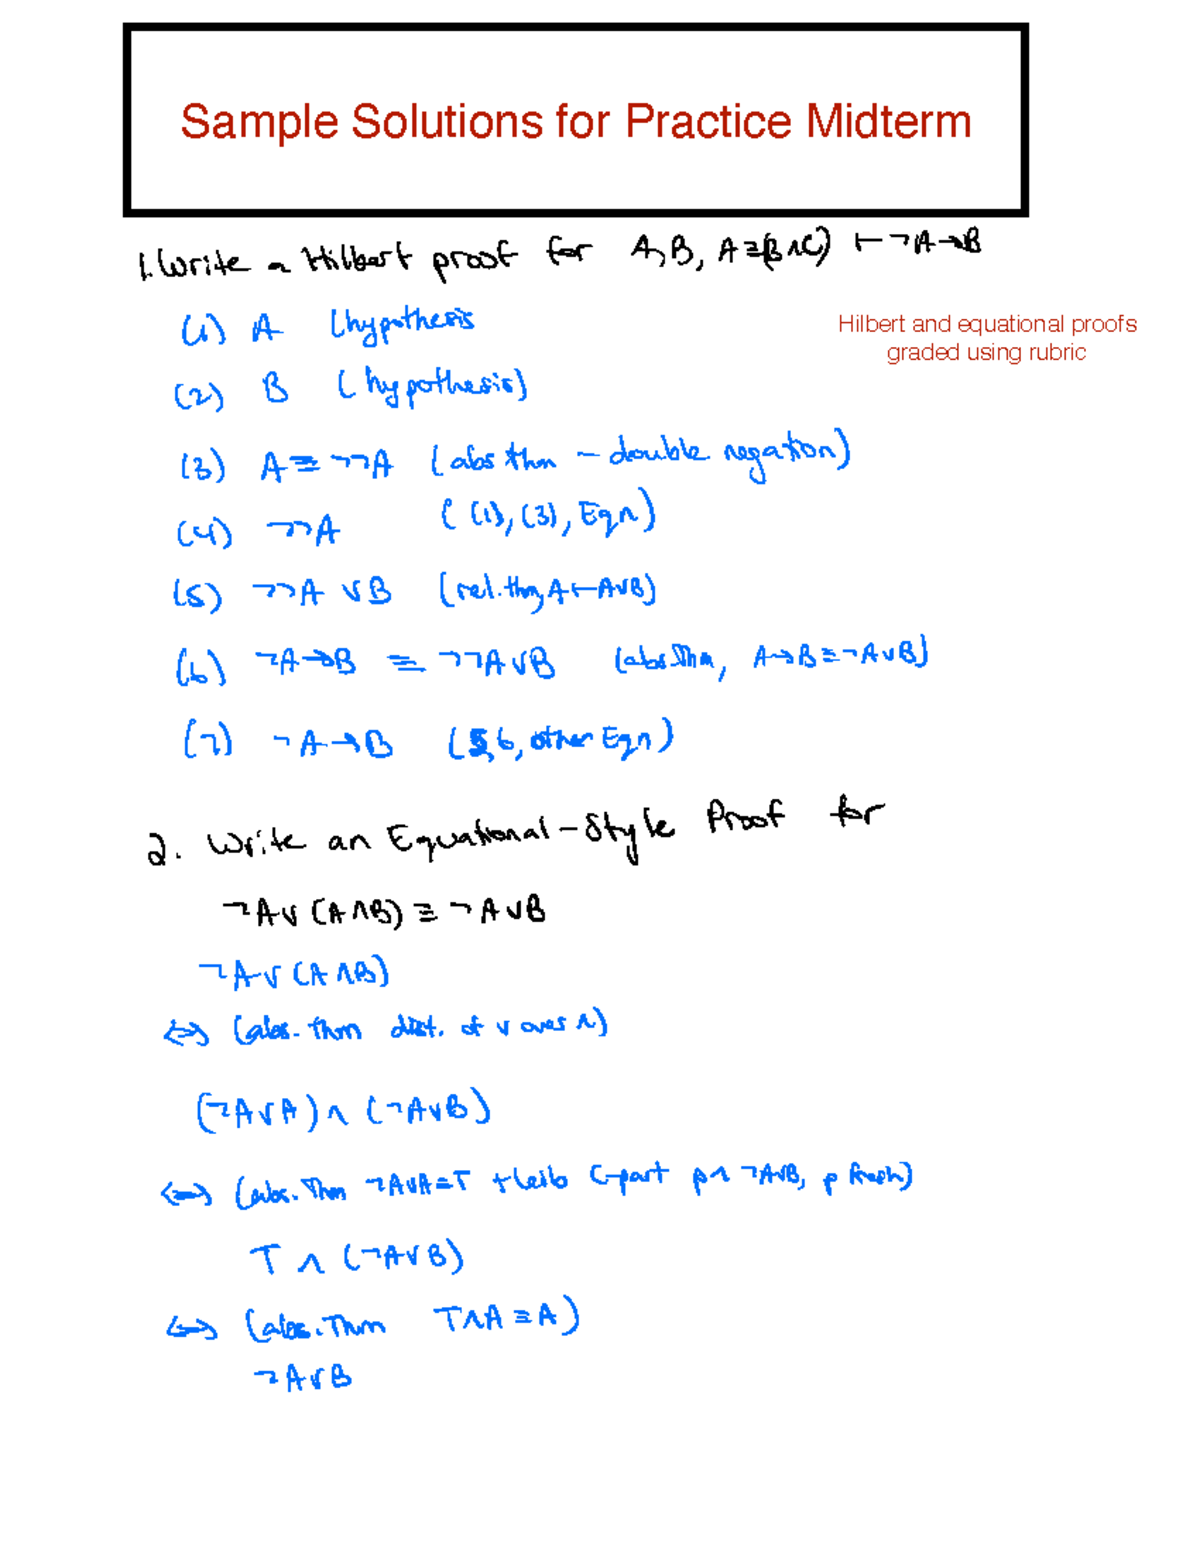 Sample Solutions for Practice Midterm
1. Write a Hilbert proof for A, B, A≡(B∧C) ⊢ ¬A→B
Hilbert and equational proofs
graded using rubric
(1) A (hypothesis
(2) B (hypothesis)
(3) A≡¬¬A (abs thm – double negation)
(4) ¬¬A ((1), (3), Eqn)
(5) ¬¬A ∨B (rel. thm, A⊢A∨B)
(6) ¬A→B ≡ ¬¬A∨B (abs.Thm, A→B≡¬A∨B)
(7) ¬A→B (5,6, other Eqn)
2. Write an Equational-Style Proof for
¬A∨(A∧B) ≡ ¬A∨B
¬A∨(A∧B)
⇔ (abs. thm dist. of ∨ over ∧)
(¬A∨A)∧(¬A∨B)
⇔ (abs. Thm ¬A∨A≡T + Leib C-part p∧¬A∨B, p fresh)
T∧(¬A∨B)
⇔ (abs. Thm T∧A≡A)
¬A∨B